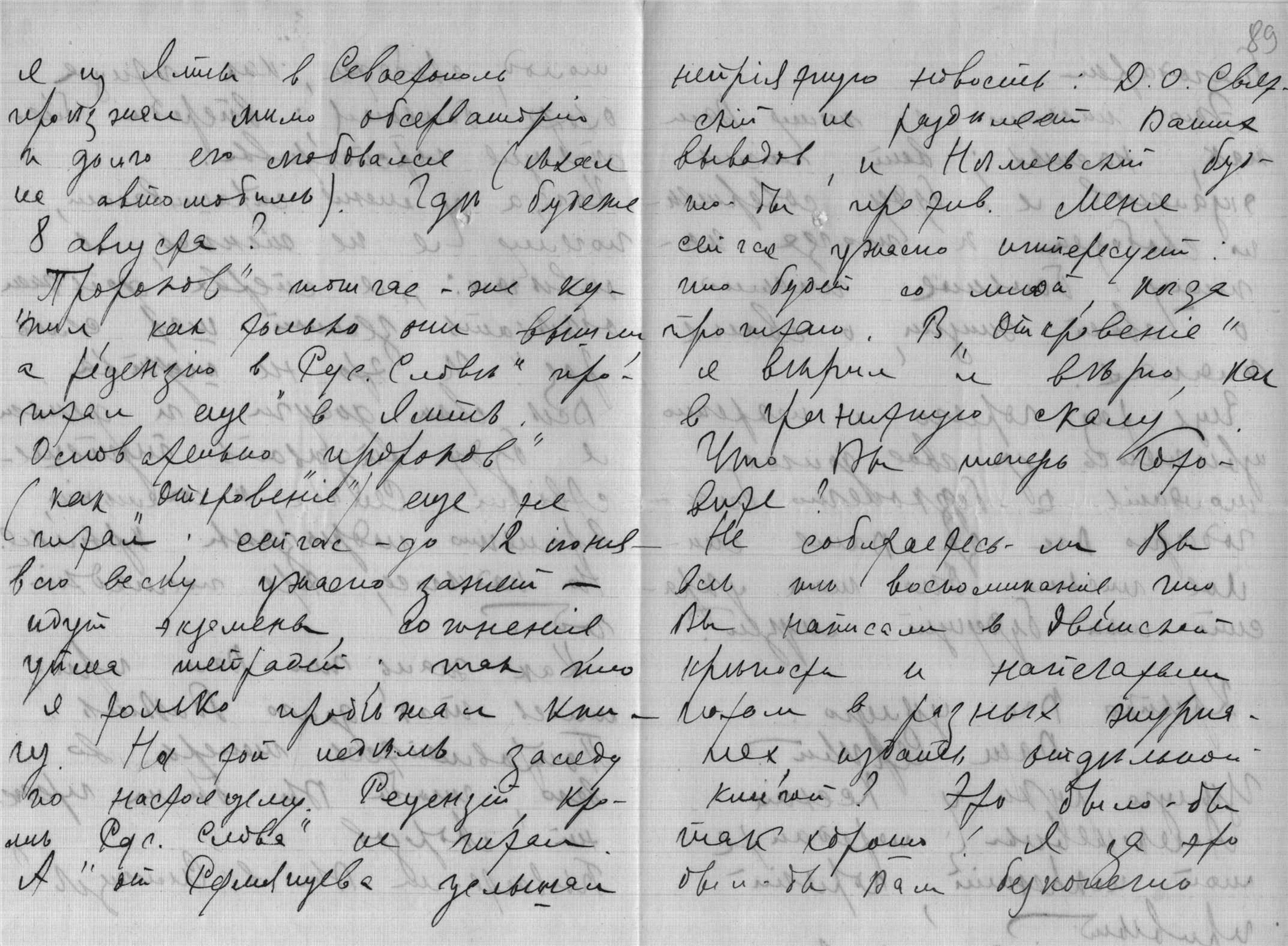 я из Ялты в Севастополь
проѣзжал мимо обсерваторіи
и долго ею любовался (ѣхал
на автомобиль). Гдѣ будете
8 августа?
„Пророков" тотчас-же ку-
пил как только они вышли
а рецензію в „Рус. Словѣ" про-
читал еще в Ялтѣ.
Основательно „пророков"
(как „Откровеніе") еще не
читал; сейчас – до 12 іюня –
всю весну ужасно занят —
идут экзамены, сочиненія
уйма тетрадей; так что
я только пробѣжал кни-
гу. На той недѣлѣ засяду
по настоящему. Рецензій кро-
мѣ „Рус. Слова" не читал.
А от Румянцева услышал
89
непріятную новость: Д. О. Свят-
скій не раздѣляет Ваших
выводов, и Нѣмоевскій буд-
то-бы против. Меня
сейчас ужасно интересует:
что будет со мной, когда
прочитаю. В „Откровеніе"
я вѣрил и вѣрю, как
в гранитную скалу.
Что Вы теперь гото-
вите?
Не собираетесь-ли Вы
всѣ тѣ воспоминанія что
Вы написали в Двинской
крѣпости и напечатали
потом в разных журна-
лах, издать отдѣльной
книгой? Это было-бы
так хорошо! Я за это
был-бы Вам безконечно